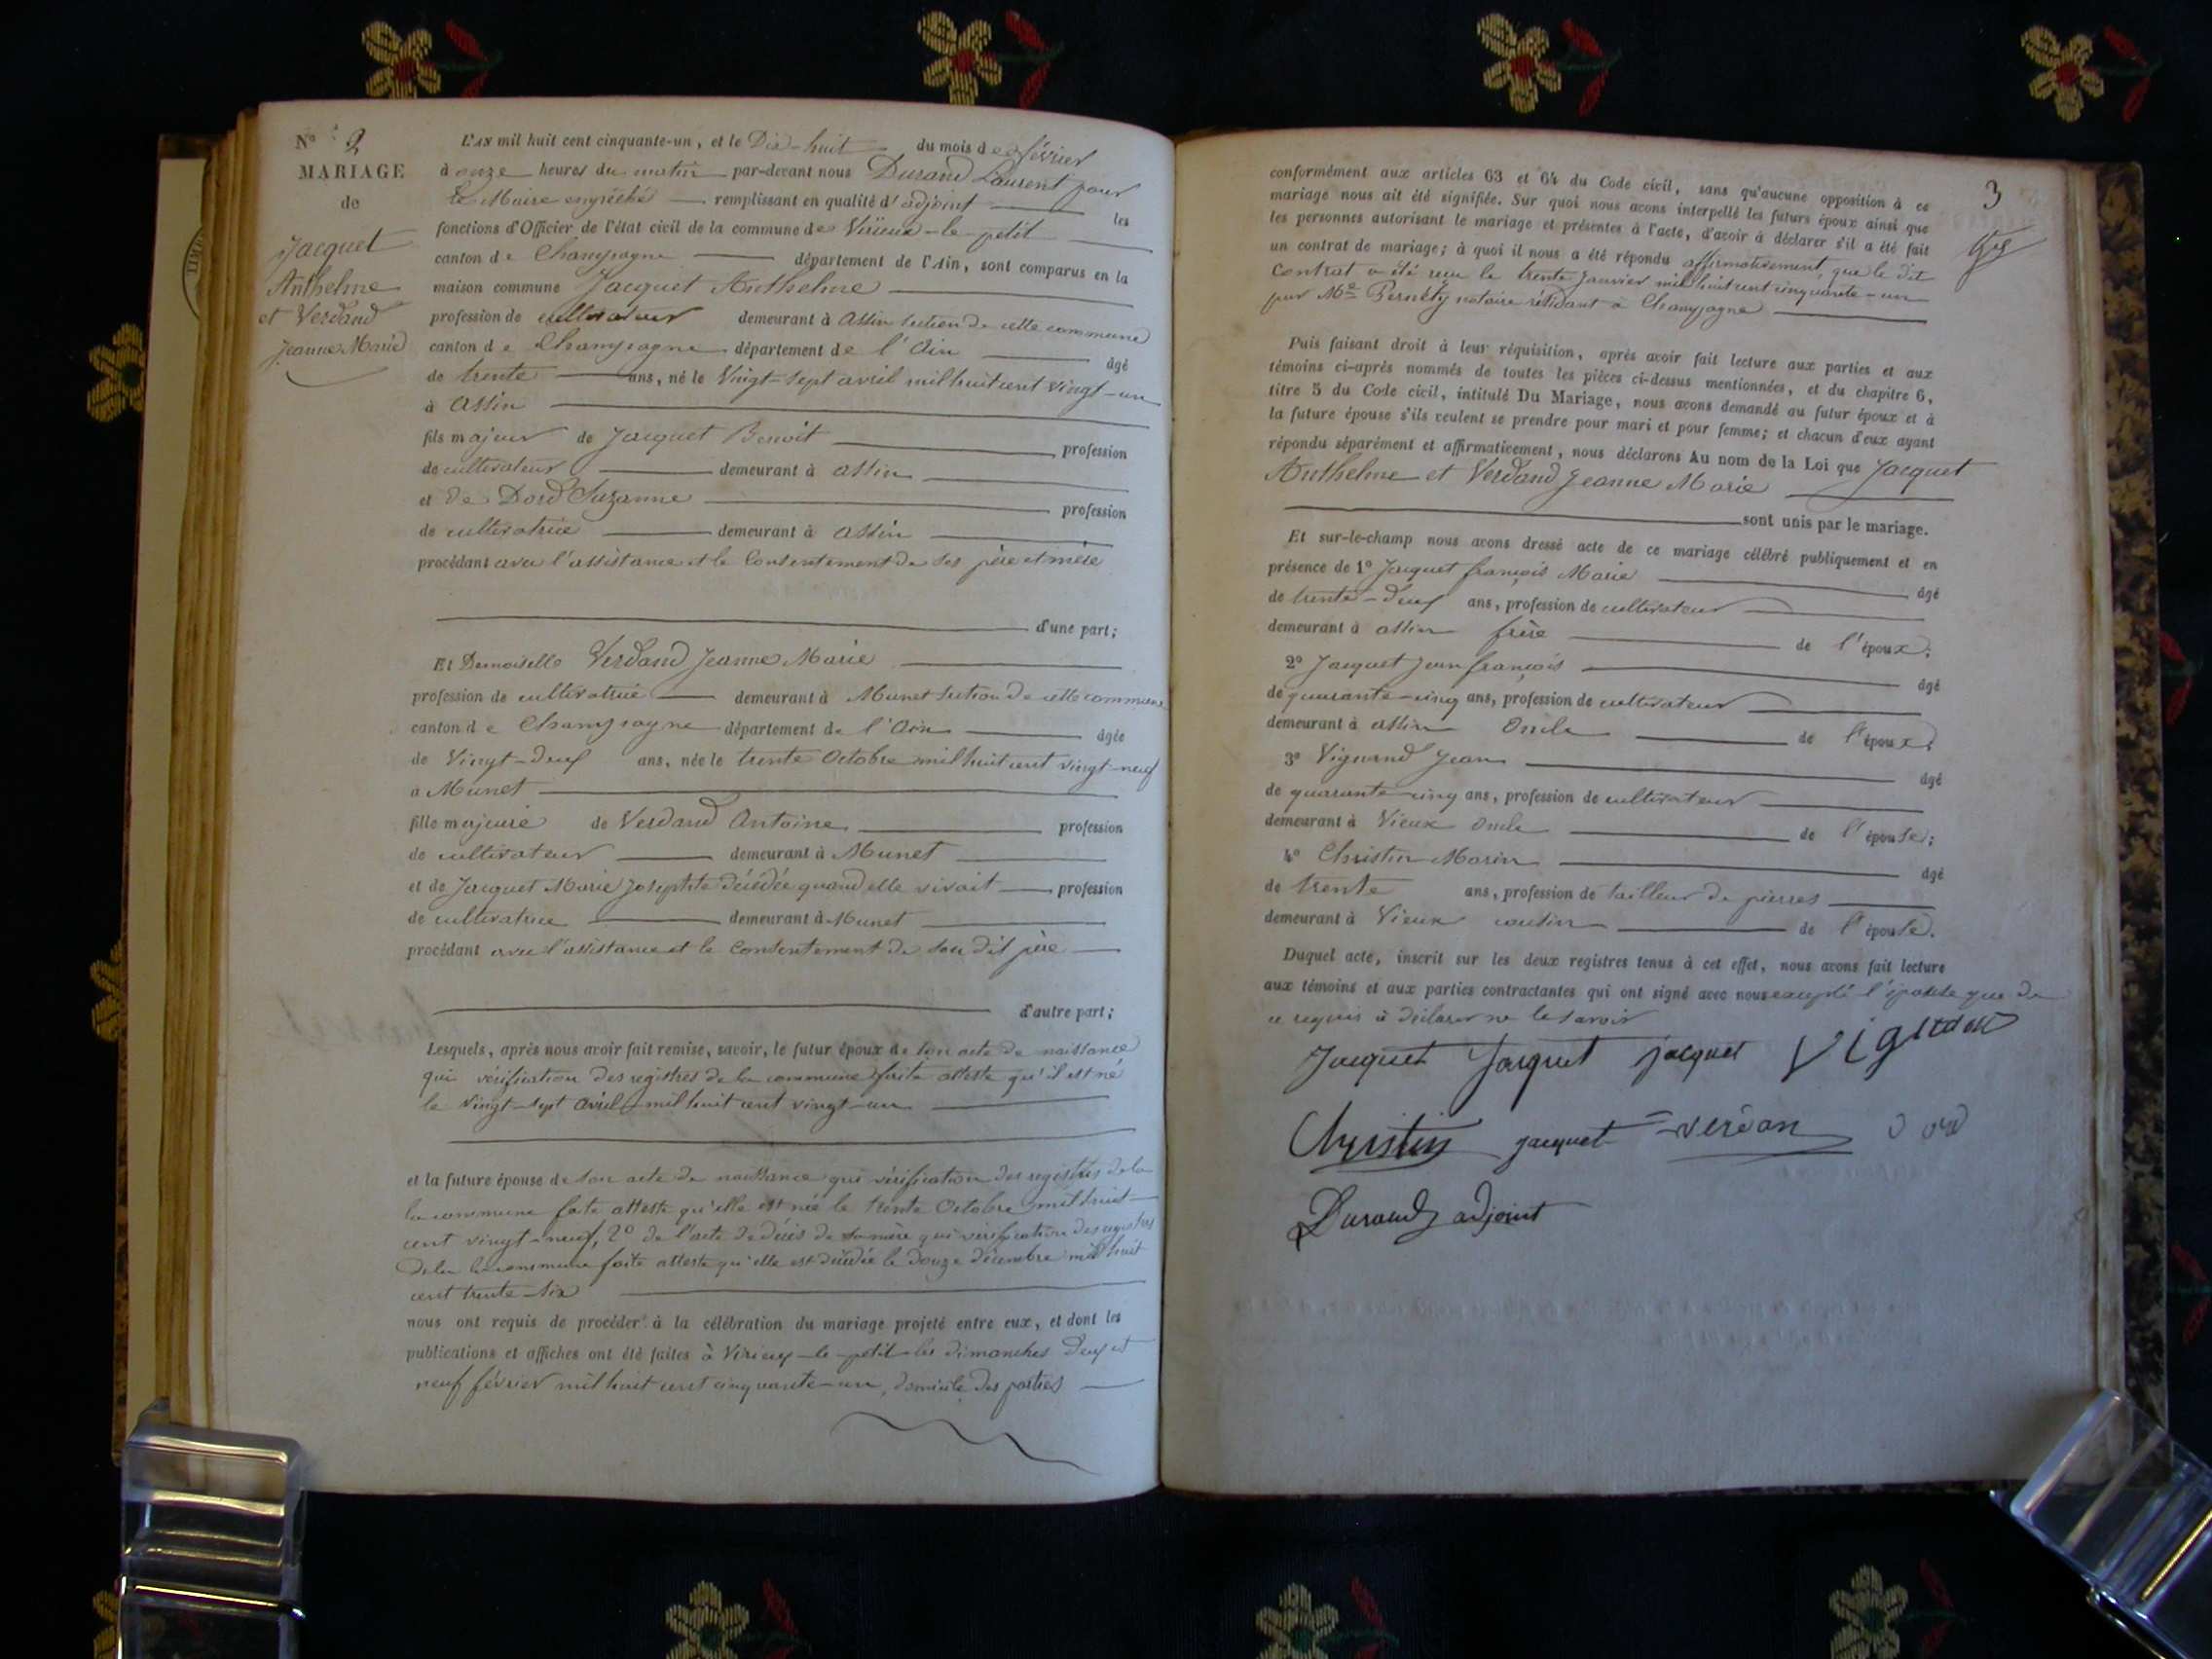 N° 2
MARIAGE
de
Jacquet
Anthelme
et Verdand
Jeanne Marie
L'AN mil huit cent cinquante-un, et le Dix-huit du mois de février
à onze heures du matin par-devant nous Durand Laurent pour
le Maire empêché remplissant en qualité d'adjoint les
fonctions d'Officier de l'état civil de la commune de Virieux-le-petit
canton de Champagne département de l'Ain, sont comparus en la
maison commune Jacquet Anthelme
profession de cultivateur demeurant à Assin section de cette commune
canton de Champagne département de l'Ain âgé
de trente ans, né le Vingt-sept avril mil huit cent vingt-un
à Assin
fils majeur de Jacquet Benoît profession
de cultivateur demeurant à Assin
et de Dord Suzanne profession
de cultivatrice demeurant à Assin
procédant avec l'assistance et le Consentement de ses père et mère
d'une part;
Et Demoiselle Verdand Jeanne Marie
profession de cultivatrice demeurant à Munet section de cette commune
canton de Champagne département de l'Ain âgée
de Vingt-deux ans, née le trente Octobre mil huit cent vingt-neuf
à Munet
fille majeure de Verdand Antoine profession
de cultivateur demeurant à Munet
et de Jacquet Marie Josephte décédée quand elle vivait profession
de cultivatrice demeurant à Munet
procédant avec l'assistance et le Consentement de son dit père
d'autre part;
Lesquels, après nous avoir fait remise, savoir, le futur époux de son acte de naissance
qui vérification des registres de la commune faite atteste qu'il est né
le Vingt-sept Avril mil huit cent vingt-un
et la future épouse de son acte de naissance qui vérification des registres de la
la commune faite atteste qu'elle est née le trente Octobre mil huit
cent vingt-neuf, 2° de l'acte de décès de sa mère qui vérification des registres
de la la commune faite atteste qu'elle est décédée le douze décembre mil huit
cent trente-six
nous ont requis de procéder à la célébration du mariage projeté entre eux, et dont les
publications et affiches ont été faites à Virieux-le-petit les dimanches Deux et
neuf février mil huit cent cinquante-un, domicile des parties
3
conformément aux articles 63 et 64 du Code civil, sans qu'aucune opposition à ce
mariage nous ait été signifiée. Sur quoi nous avons interpellé les futurs époux ainsi que
les personnes autorisant le mariage et présentes à l'acte, d'avoir à déclarer s'il a été fait
un contrat de mariage; à quoi il nous a été répondu affirmativement, que le dit
Contrat a été reçu le trente Janvier mil huit cent cinquante-un
par Me Pernéty notaire résidant à Champagne
Puis faisant droit à leur réquisition, après avoir fait lecture aux parties et aux
témoins ci-après nommés de toutes les pièces ci-dessus mentionnées, et du chapitre 6,
titre 5 du Code civil, intitulé Du Mariage, nous avons demandé au futur époux et à
la future épouse s'ils veulent se prendre pour mari et pour femme; et chacun d'eux ayant
répondu séparément et affirmativement, nous déclarons Au nom de la Loi que Jacquet
Anthelme et Verdand Jeanne Marie
sont unis par le mariage.
Et sur-le-champ nous avons dressé acte de ce mariage célébré publiquement et en
présence de 1° Jacquet françois Marie âgé
de trente-deux ans, profession de cultivateur
demeurant à assin frère de l'époux;
2° Jacquet Jean françois âgé
de quarante-cinq ans, profession de cultivateur
demeurant à assin Oncle de l'époux;
3° Vignand Jean âgé
de quarante-cinq ans, profession de cultivateur
demeurant à Vieux Oncle de l'épouse;
4° Christin Marin âgé
de trente ans, profession de tailleur de pierres
demeurant à Vieux cousin de l'épouse.
Duquel acte, inscrit sur les deux registres tenus à cet effet, nous avons fait lecture
aux témoins et aux parties contractantes qui ont signé avec nous excepté l'épouse que de
ce requis a déclaré ne le savoir
Jacquet Jacquet jacquet
Christin jacquet verdan Dord
Durand adjoint